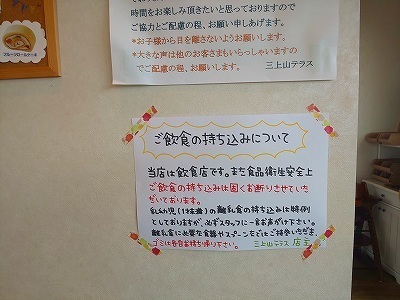 時間をお楽しみ頂きたいと思っておりますので
ご協力とご配慮の程、お願い申しあげます。
*お子様から目を離さないようお願いします。
*大きな声は他のお客さまもいらっしゃいますの
でご配慮の程、お願いします。 三上山テラス
フルーツロールケーキ
ご飲食の持ち込みについて
当店は飲食店です。また食品衛生安全上
ご飲食の持ち込みは固くお断りさせていた
だいております。
乳幼児(1才未満)の離乳食の持ち込みは特例
としておりますが、必ずスタッフに一言お声がけ下さい。
離乳食に必要な食器やスプーンなどはご持参いただき、
ゴミは各自お持ち帰り下さい。 三上山テラス 店主